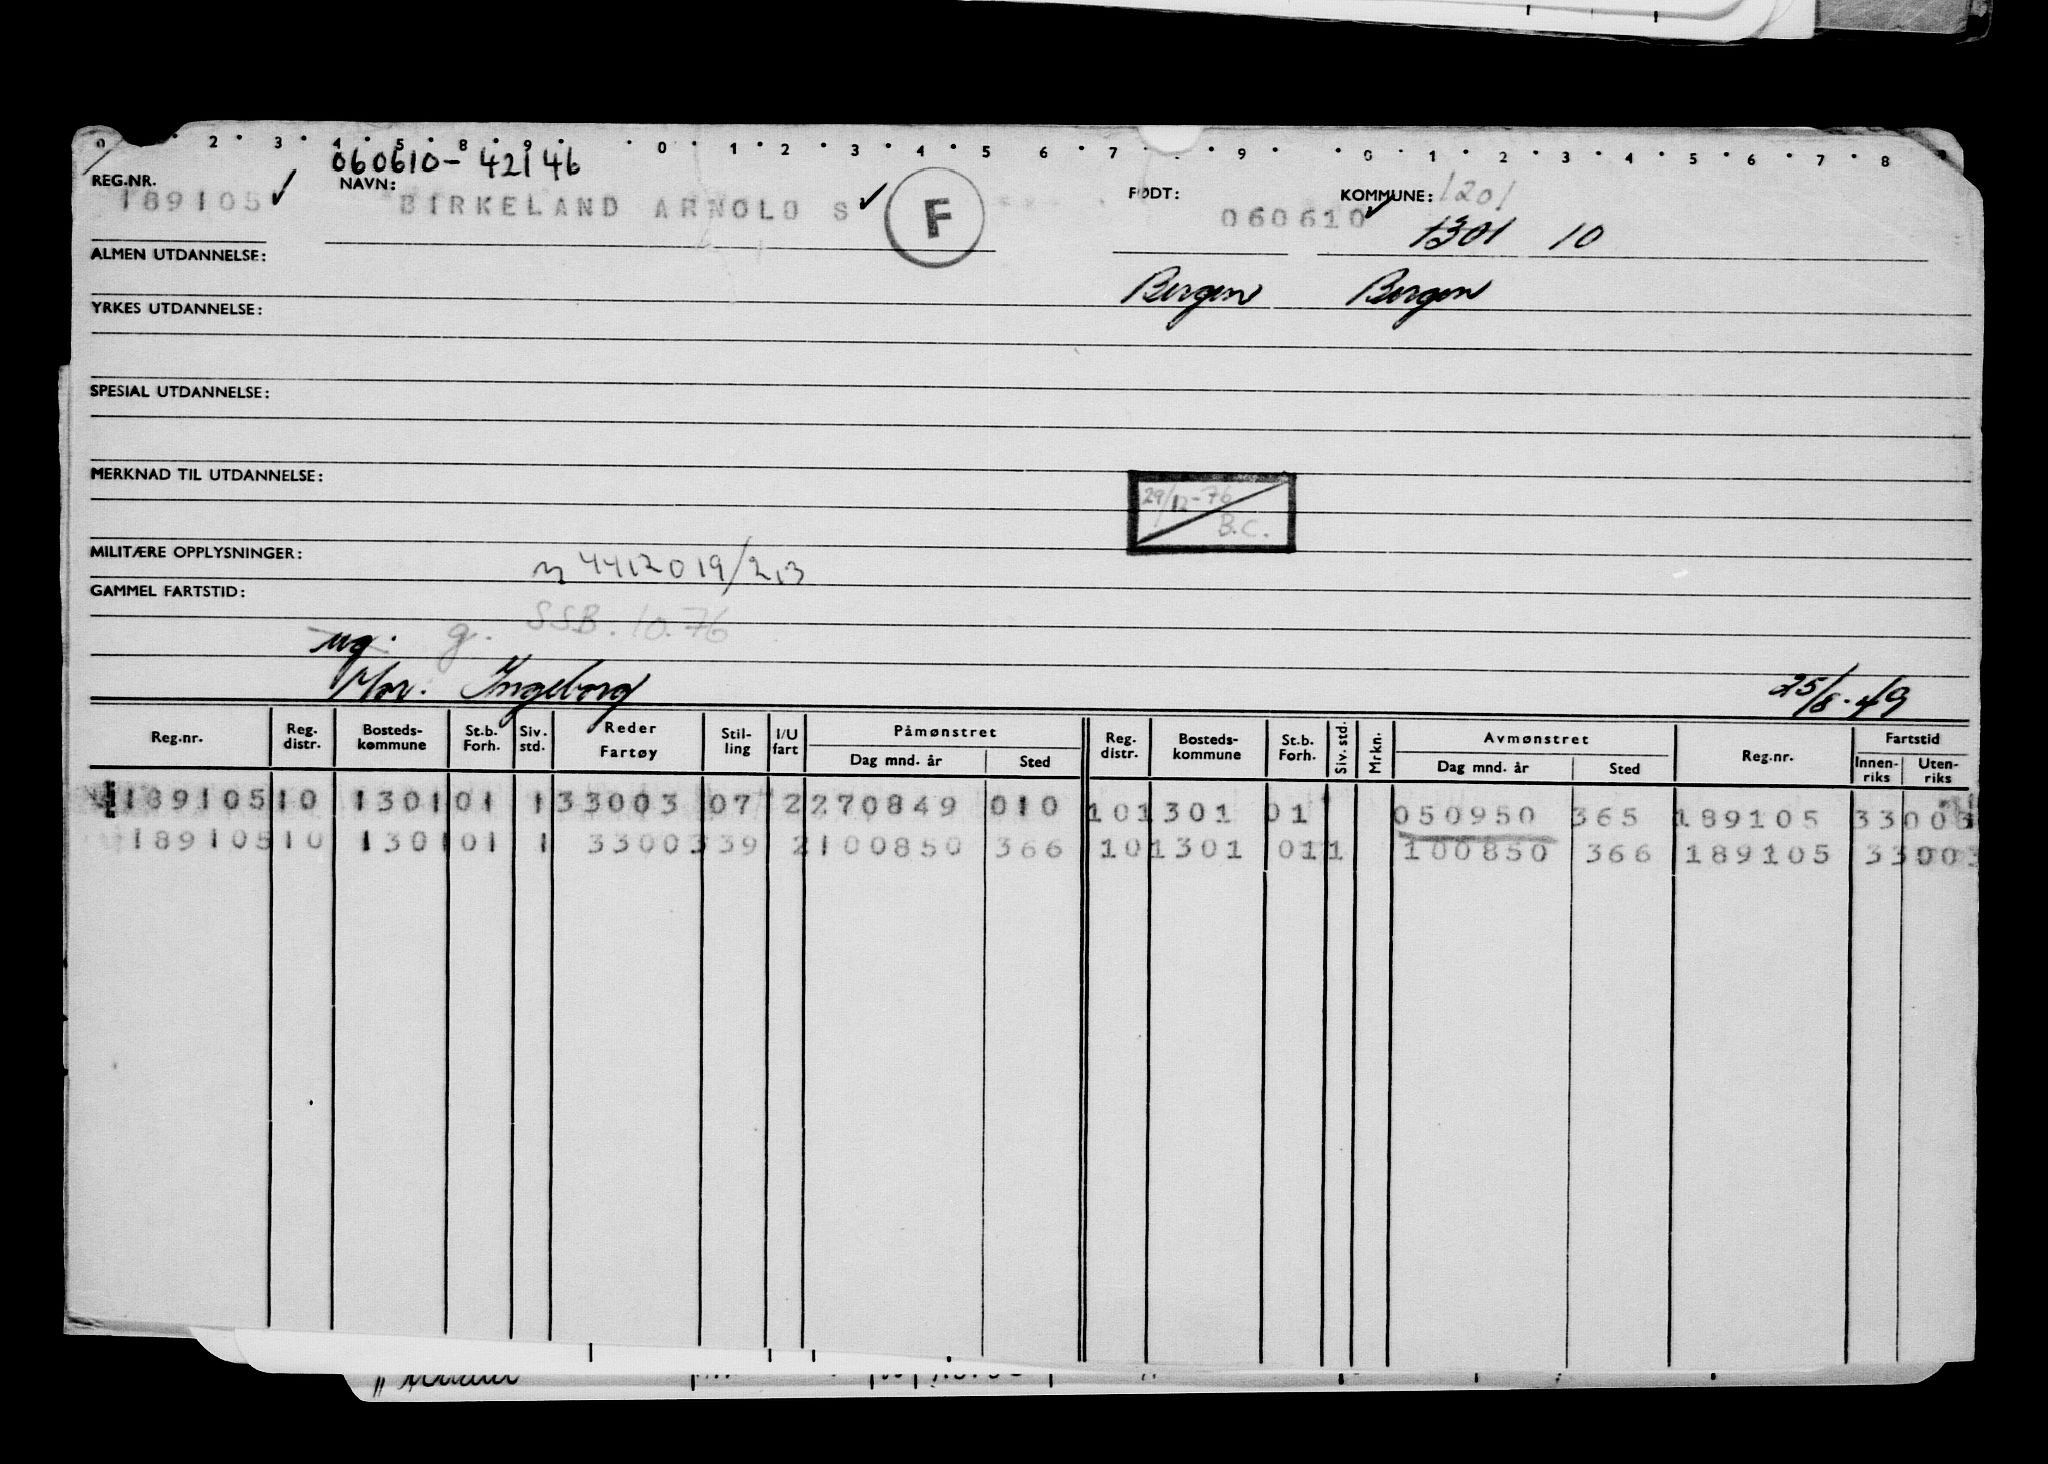 0 2 3 4 5 8 9 0 1 2 3 4 5 6 7 9 0 1 2 3 4 5 6 7 8
060610-42146
REG.NR. NAVN: FØDT: KOMMUNE: 1201
189105 ✓ BIRKELAND ARNOLD S ✓ F 060610 ✓ 1301 10
ALMEN UTDANNELSE:
Bergen Bergen
YRKES UTDANNELSE:
SPESIAL UTDANNELSE:
MERKNAD TIL UTDANNELSE:
29/12-76
B.C.
MILITÆRE OPPLYSNINGER: 4412019/213
GAMMEL FARTSTID:
SSB. 10.76
ug. g.
Mor. Ingeborg 25/8-49
Reg.nr. Reg. distr. Bosteds-kommune St.b. Forh. Siv. std. Reder Fartøy Stil-ling I/U fart Påmønstret Dag mnd. år Sted Reg. distr. Bosteds-kommune St.b. Forh. Siv. std. Mrkn. Avmønstret Dag mnd. år Sted Reg.nr. Fartstid Innen-riks Uten-riks
189105 10 1301 01 1 33003 07 2 270849 010 10 1301 01 050950 365 189105 33003
189105 10 1301 01 1 33003 39 2 100850 366 10 1301 01 1 100850 366 189105 33003